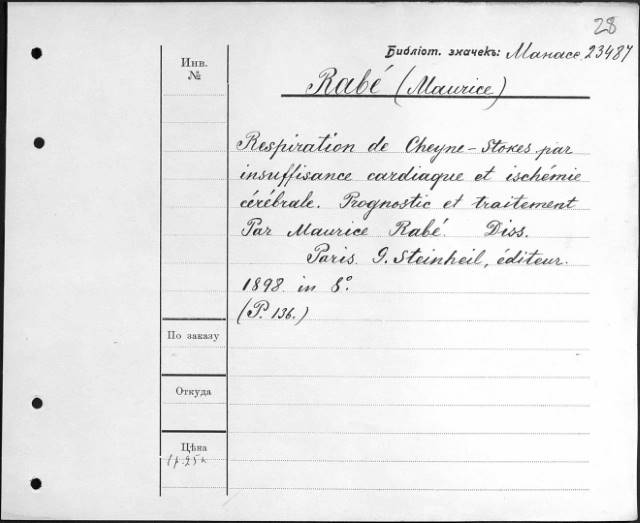 28
Библіот. значекъ: Манасе. 23487
Инв.
№
Rabé (Maurice)
Respiration de Cheyne-Stokes par
insuffisance cardiaque et ischémie
cérébrale. Prognostic et traitement
Par Maurice Rabé. Diss.
Paris. G. Steinheil, éditeur.
1898 in 8°.
(P. 136.)
По заказу
Откуда
Цѣна
1 р. 25 к